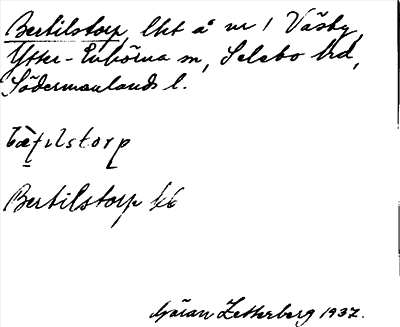 Bertilstorp, lht å nr 1 Väsby,
Ytter-Enhörna sn, Selebo hd,
Södermanlands l.
bæ̀ṭılstorp
Bertilstorp kk
Göran Zetterberg 1937.